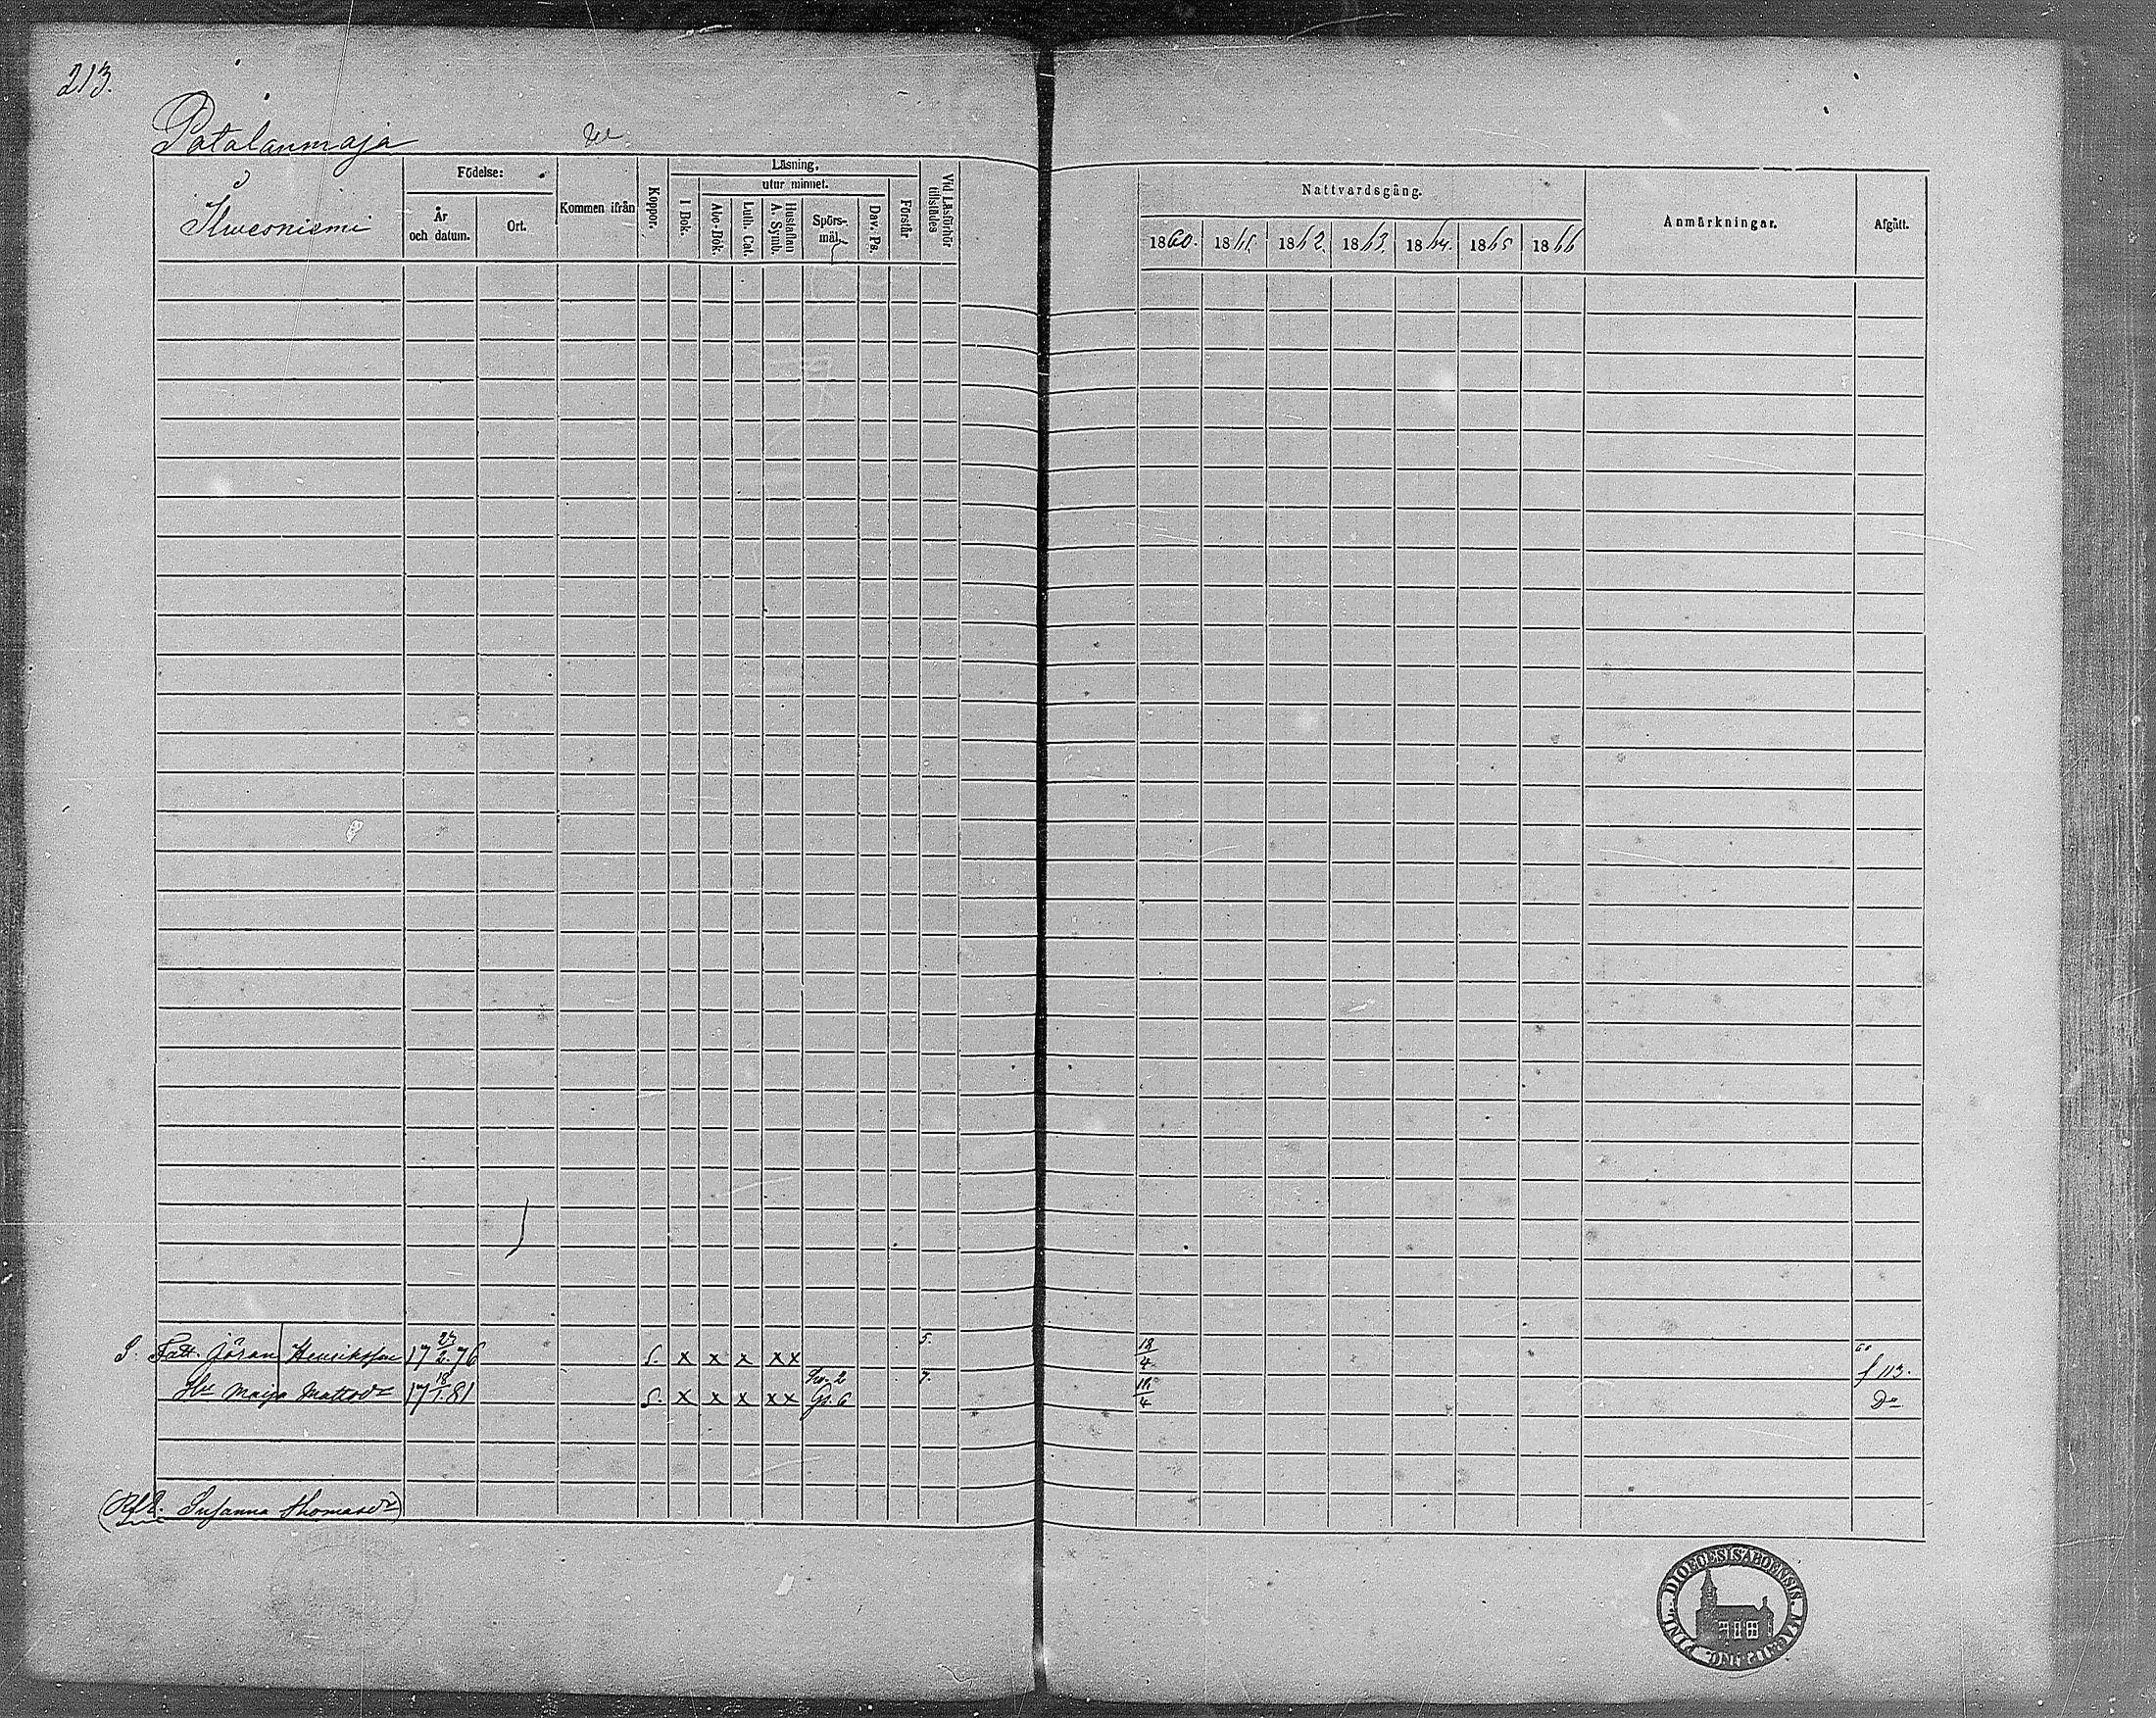 213.
Patalanmaja
Ilweoniemi
Födelse:
År och datum.
Ort.
Kommen ifrån
Koppor.
Läsning.
utur minnet.
I Bok.
Abc-Bok.
Luth. Cat.
Hustaflan A. Symb.
Spörsmål.
Dav. Ps.
Förstår
Vid Läsförhör tillstädes
Nattvardsgång.
1860. 1861. 1862. 1863. 1864. 1865 1866
Anmärkningar.
Afgått.
S. Fatt. Jöran Henriksson 17 23/2. 76 S. x x x xx 5. 18/4 60 f 113.
Hu Maija Mattsdr 17 18/1. 81 S. x x x xx Sv. 2 Gr. 6 7. 18/4 Do
Susanna Thomasdr)